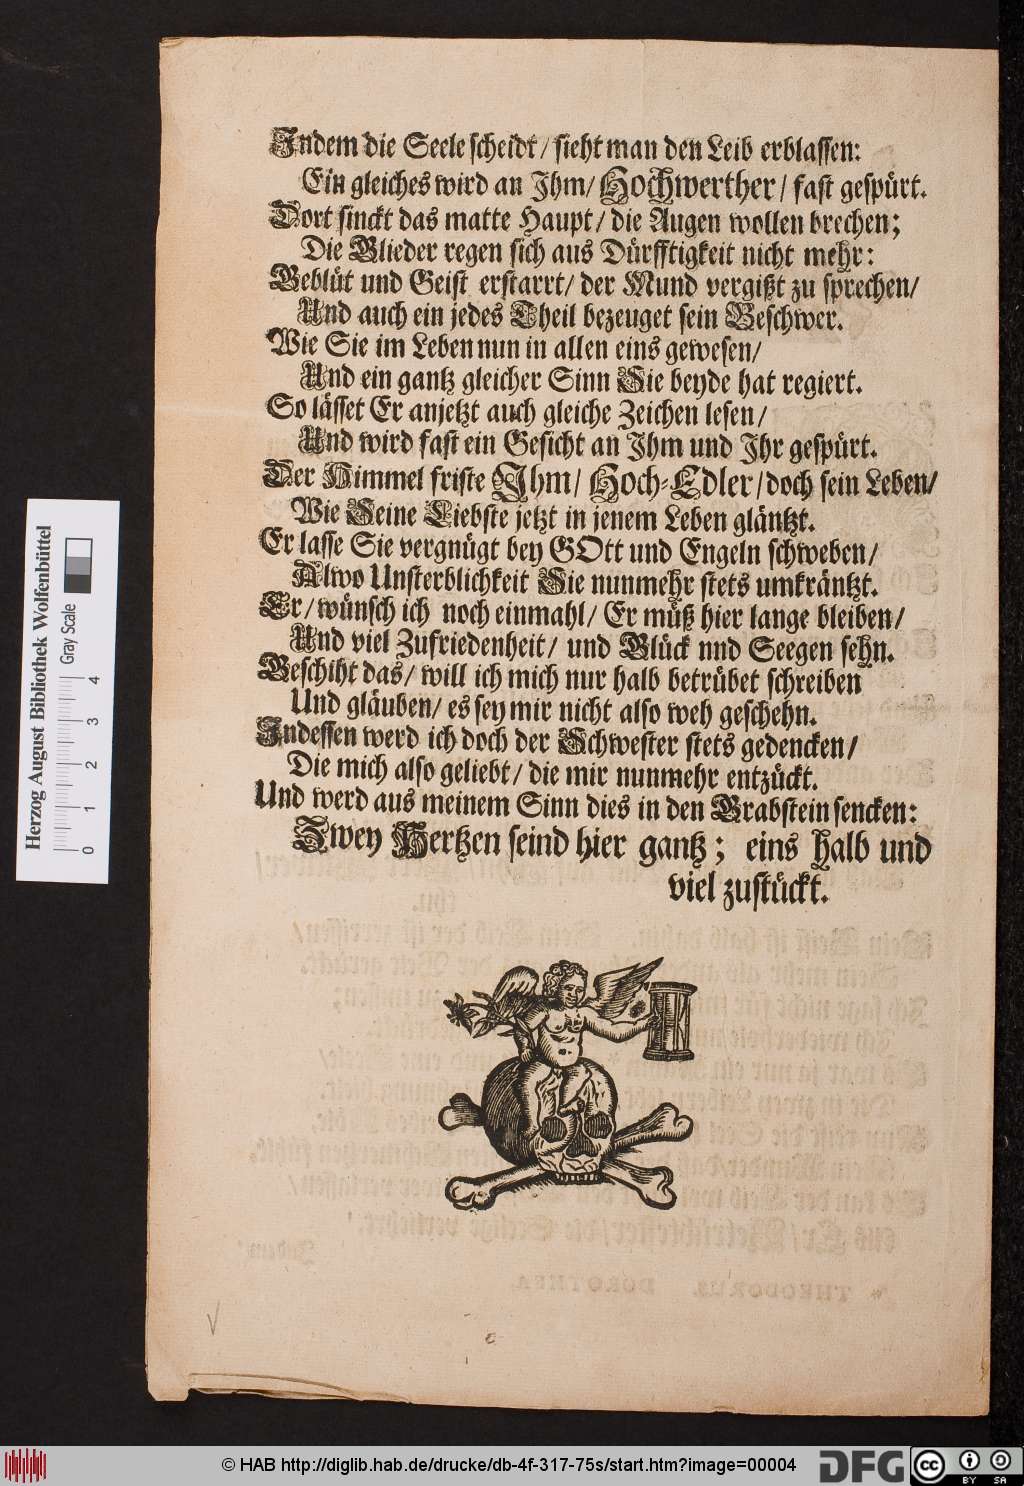 Indem die Seele scheidt / sieht man den Leib erblassen:
Ein gleiches wird an Ihm / Hochwerther / fast gespürt.
Dort sinckt das matte Haupt / die Augen wollen brechen;
Die Glieder regen sich aus Dürfftigkeit nicht mehr:
Geblüt und Geist erstarrt / der Mund vergißt zu sprechen /
Und auch ein jedes Theil bezeuget sein Beschwer.
Wie Sie im Leben nun in allen eins gewesen /
Und ein gantz gleicher Sinn Sie beyde hat regiert.
So lässet Er anjetzt auch gleiche Zeichen lesen /
Und wird fast ein Gesicht an Ihm und Ihr gespürt.
Der Himmel friste Ihm / Hoch-Edler / doch sein Leben /
Wie Seine Liebste jetzt in jenem Leben gläntzt.
Er lasse Sie vergnügt bey GOtt und Engeln schweben /
Alwo Unsterblichkeit Sie nunmehr stets umkräntzt.
Er / wünsch ich noch einmahl / Er müß hier lange bleiben /
Und viel Zufriedenheit / und Glück nnd Seegen sehn.
Geschiht das / will ich mich nur halb betrübet schreiben
Und gläuben / es sey mir nicht also weh geschehn.
Indessen werd ich doch der Schwester stets gedencken /
Die mich also geliebt / die mir nunmehr entzückt.
Und werd aus meinem Sinn dies in den Grabstein sencken:
Zwey Hertzen seind hier gantz; eins halb und
viel zustückt.
Herzog August Bibliothek Wolfenbüttel
Gray Scale
0 1 2 3 4
© HAB http://diglib.hab.de/drucke/db-4f-317-75s/start.htm?image=00004
DFG
cc
BY SA